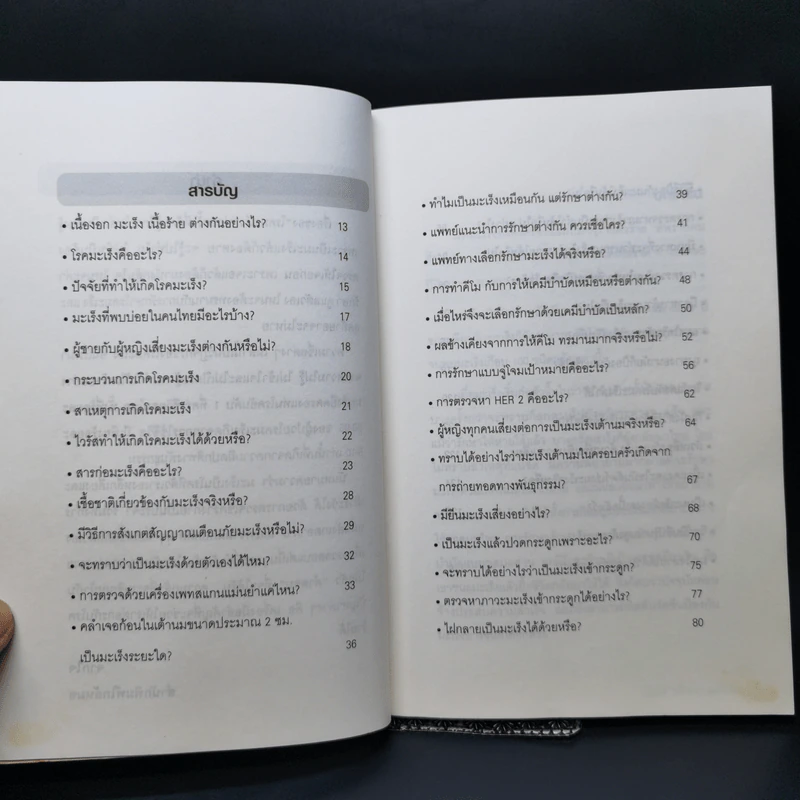 สารบัญ
• เนื้องอก มะเร็ง เนื้อร้าย ต่างกันอย่างไร? 13
• โรคมะเร็งคืออะไร? 14
• ปัจจัยที่ทำให้เกิดโรคมะเร็ง? 15
• มะเร็งที่พบบ่อยในคนไทยมีอะไรบ้าง? 17
• ผู้ชายกับผู้หญิงเสี่ยงมะเร็งต่างกันหรือไม่? 18
• กระบวนการเกิดโรคมะเร็ง 20
• สาเหตุการเกิดโรคมะเร็ง 21
• ไวรัสทำให้เกิดโรคมะเร็งได้ด้วยหรือ? 22
• สารก่อมะเร็งคืออะไร? 23
• เชื้อชาติเกี่ยวข้องกับมะเร็งจริงหรือ? 28
• มีวิธีการสังเกตสัญญาณเตือนภัยมะเร็งหรือไม่? 29
• จะทราบว่าเป็นมะเร็งด้วยตัวเองได้ไหม? 32
• การตรวจด้วยเครื่องเพทสแกนแม่นยำแค่ไหน? 33
• คลำเจอก้อนในเต้านมขนาดประมาณ 2 ซม.
เป็นมะเร็งระยะใด? 36
• ทำไมเป็นมะเร็งเหมือนกัน แต่รักษาต่างกัน? 39
• แพทย์แนะนำการรักษาต่างกัน ควรเชื่อใคร? 41
• แพทย์ทางเลือกรักษามะเร็งได้จริงหรือ? 44
• การทำคีโม กับการให้เคมีบำบัดเหมือนหรือต่างกัน? 48
• เมื่อไหร่จึงจะเลือกรักษาด้วยเคมีบำบัดเป็นหลัก? 50
• ผลข้างเคียงจากการให้คีโม ทรมานมากจริงหรือไม่? 52
• การรักษาแบบจู่โจมเป้าหมายคืออะไร? 56
• การตรวจหา HER 2 คืออะไร? 62
• ผู้หญิงทุกคนเสี่ยงต่อการเป็นมะเร็งเต้านมจริงหรือ? 64
• ทราบได้อย่างไรว่ามะเร็งเต้านมในครอบครัวเกิดจาก
การถ่ายทอดทางพันธุกรรม? 67
• มียีนมะเร็งเสี่ยงอย่างไร? 68
• เป็นมะเร็งแล้วปวดกระดูกเพราะอะไร? 70
• จะทราบได้อย่างไรว่าเป็นมะเร็งเข้ากระดูก? 75
• ตรวจหาภาวะมะเร็งเข้ากระดูกได้อย่างไร? 77
• ไฝกลายเป็นมะเร็งได้ด้วยหรือ? 80